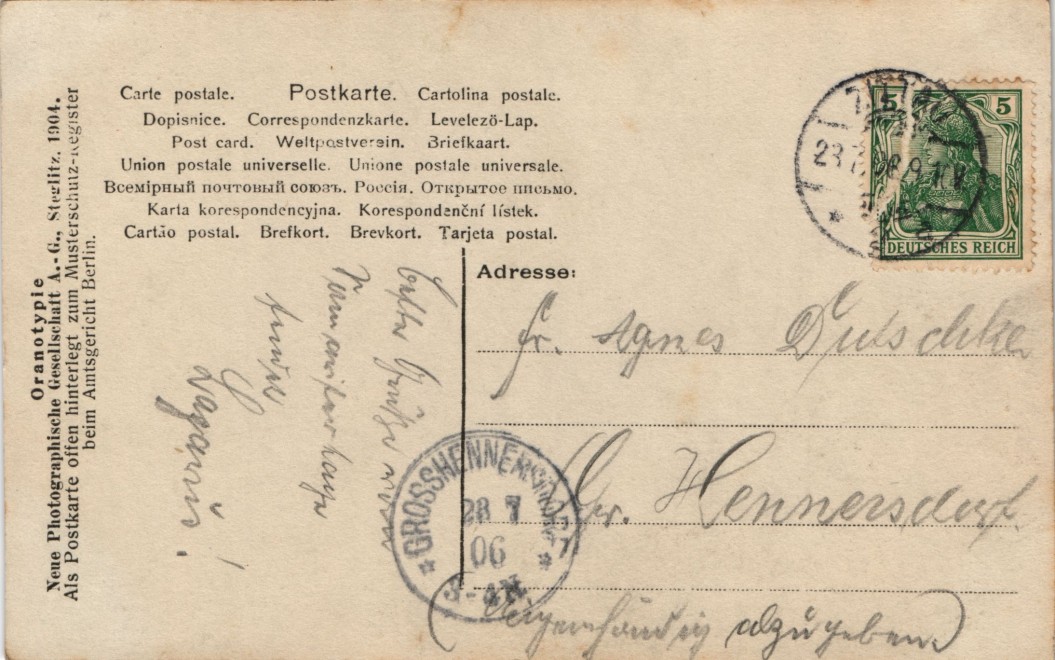 Carte postale. Postkarte. Cartolina postale.
Dopisnice. Correspondenzkarte. Levelező-Lap.
Post card. Weltpostverein. Briefkaart.
Union postale universelle. Unione postale universale.
Всемірный почтовый союзъ. Россія. Открытое письмо.
Karta korespondencyjna. Korespondenční lístek.
Cartão postal. Brefkort. Brevkort. Tarjeta postal.
Oranotypie
Neue Photographische Gesellschaft A.-G., Steglitz. 1904.
Als Postkarte offen hinterlegt zum Musterschutz-Register
beim Amtsgericht Berlin.
5 5
DEUTSCHES REICH
ZITTAU
Adresse:
Fr. Agnes Dutschke
Gr. Hennersdorf.
(Eigenhändig abzugeben.)
GROSSHENNERSDORF
28 7
06
Grüße